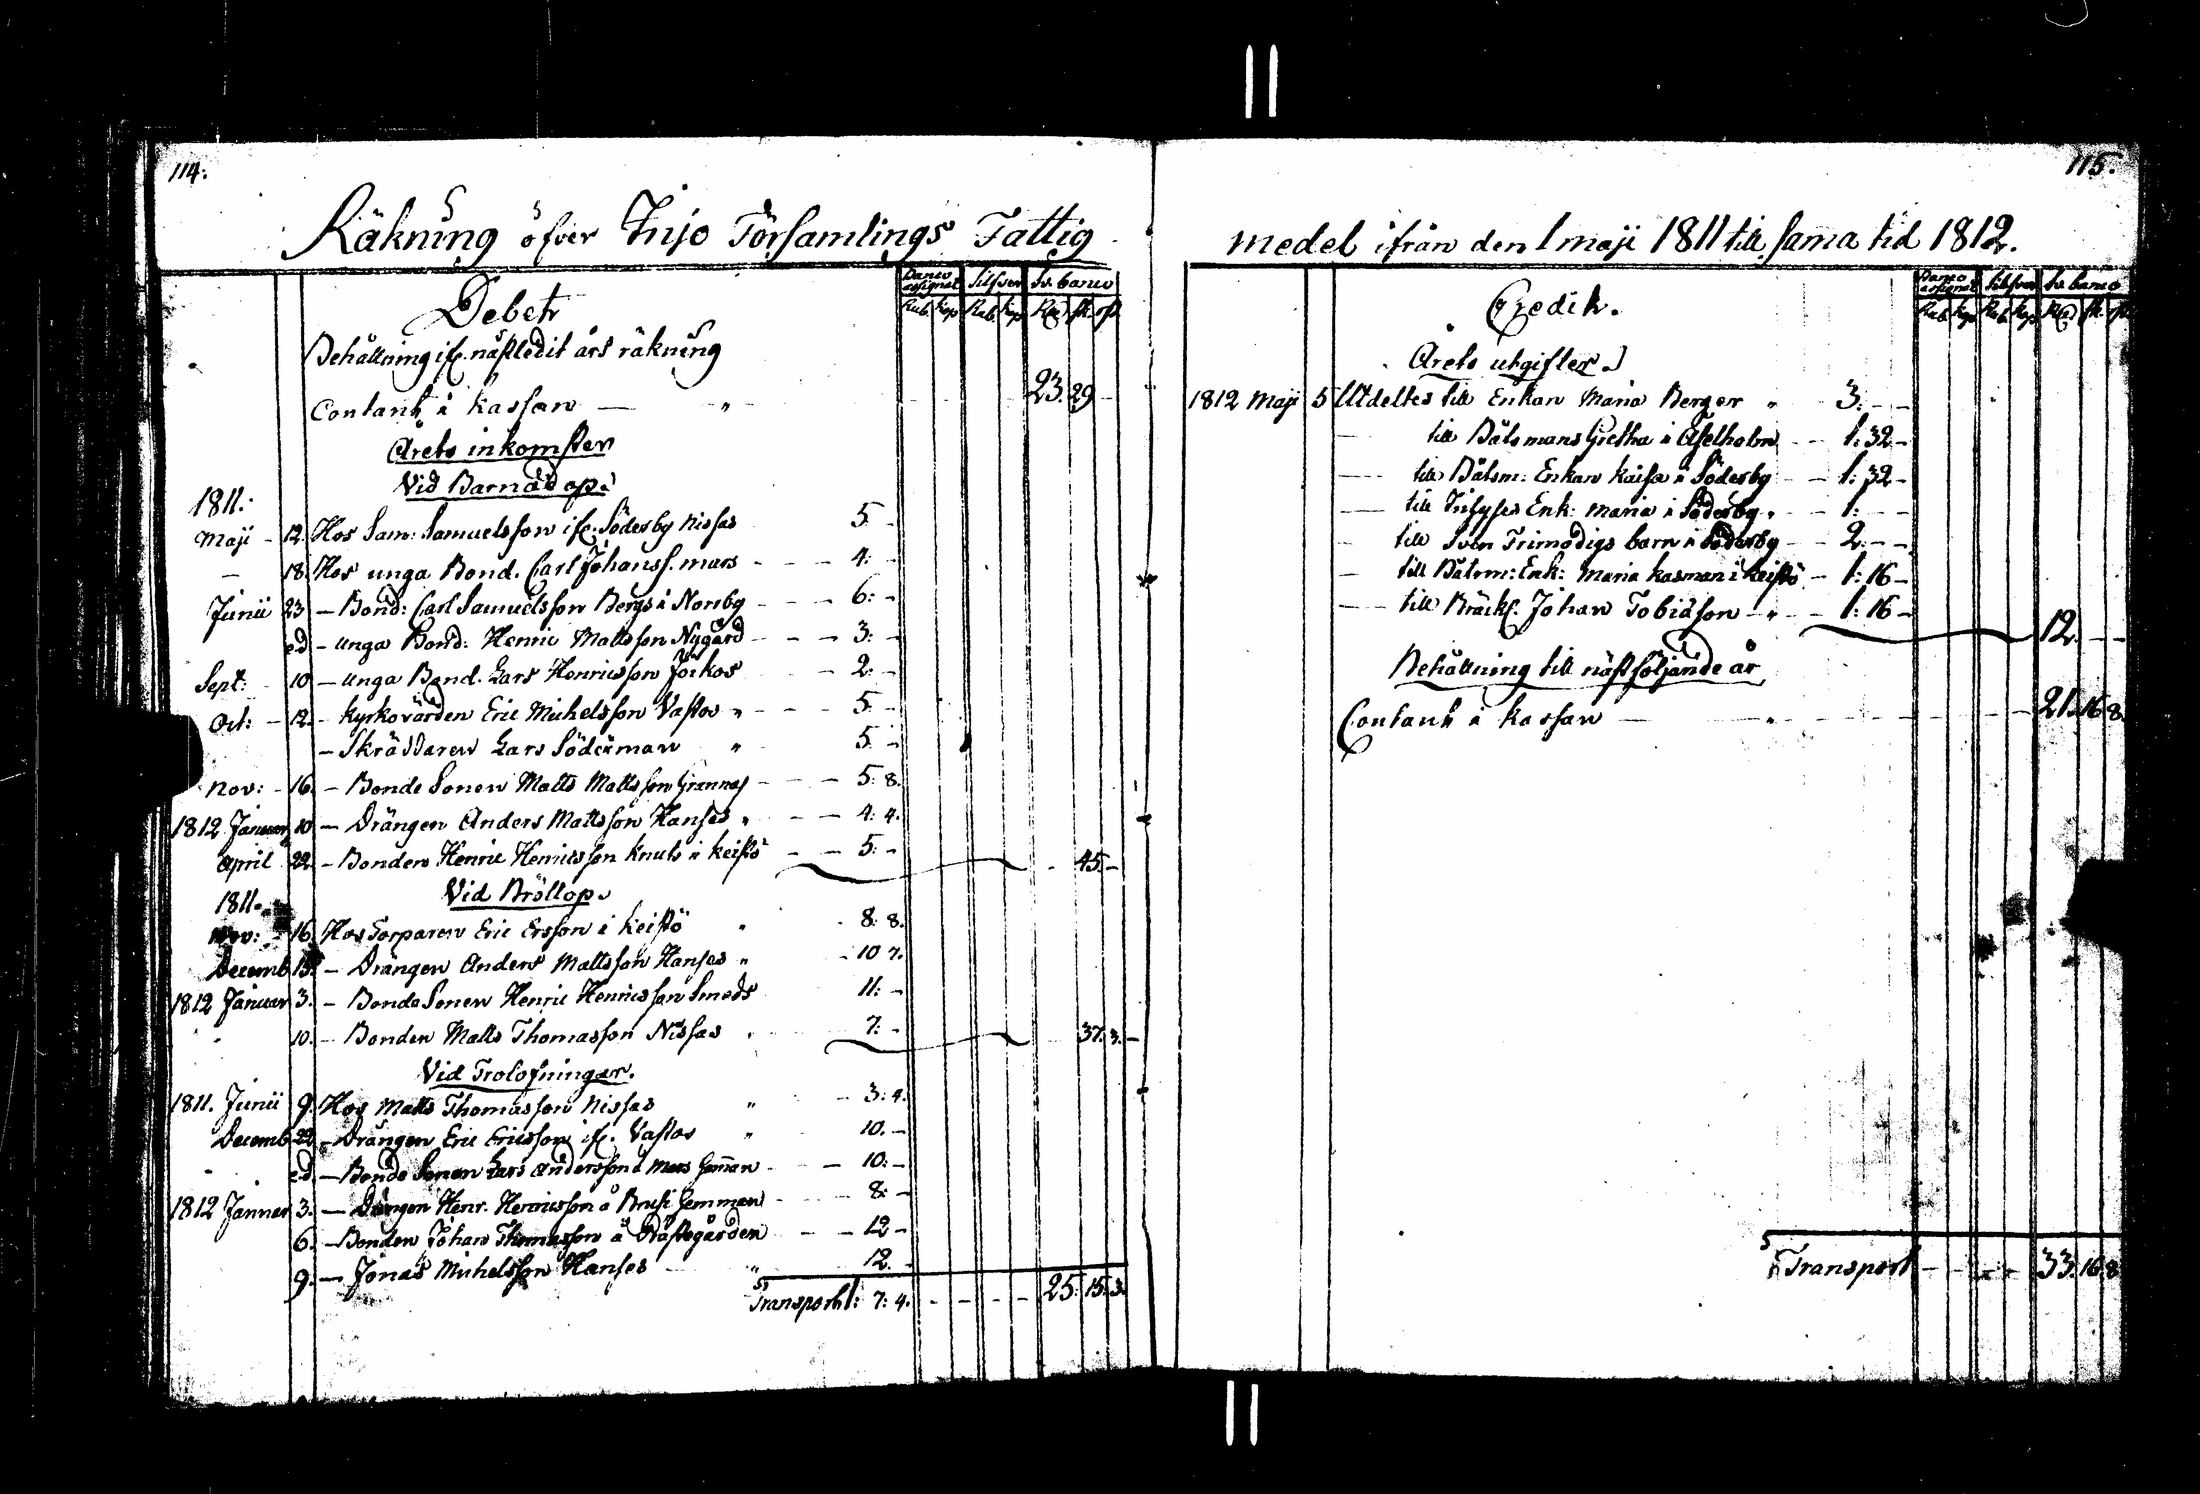 114.
Räkning öfver Inio Församlings Fattig
Debet
Banco assignat Silfver Sv. banco
Rub. kop Rub. kop Rd sk. rst
Behållning ifr. nästledit års räkning
Contant i kassan — " 23. 29 —
Årets inkomster
Vid Barnadop.
1811:
Maji — 12. Hos Sam: Samuelsson ifr. Söderby Nissas 5. —
— 18. Hos unga Bond. Carl Johanss. mars — — — 4. —
Junii 23 — Bond: Carl Samuelsson Bergs i Norrby — — — 6: —
ed — unga Bond: Henric Mattsson Nygård — — — 3: —
Sept: — 10 — unga Bond. Lars Henricsson Jörkos — 2: —
Oct: — 12. — Kyrkovärden Eric Michelsson Vastos " — — — 5. —
— Skräddaren Lars Söderman " 5 —
Nov: — 16. — Bonde Sonen Matts Mattsson Grannas — — — 5: 8.
1812 Januar 10 — Drängen Anders Mattsson Hanses " — — 4: 4.
April 22. — Bonden Henric Henricsson Knuts i Keistö — — 5: — 45. —
Vid Bröllop.
1811.
Nov: — 16. Hos Torparen Eric Ersson i Keistö " 8: 8.
Decemb 15. — Drängen Anders Mattsson Hanses " — 10 7.
1812 Januar 3. — Bonda Sonen Henric Henricsson Smeds 11: —
10. — Bonden Matts Thomasson Nissas 7: — 37. 3. —
Vid Trolofningar.
1811. Junii 9. Hos Matts Thomasson Nissas " — 3: 4.
Decemb 22. — Drängen Eric Ericsson ifr. Vastos " 10. —
ed. — Bonde Sonen Lars Andersson å Mars Hemman — — 10: —
1812 Januar 3. — Drängen Henr. Henricsson å Brusi Hemman — — 8: —
6. — Bonden Johan Thomasson å Prästegården — — 12 —
9. — Jonas Michelsson Hanses " 12. —
Transport: 7: 4. — — — — 25. 15. 3.
115.
medel ifrån den 1 maji 1811 till sama tid 1812.
Credit.
Banco assignat Silfver Sv. banco
Rub. kop Rub. kop Rd sk. rst
Årets utgifter
1812 Maji 5 Utdeltes till Enkan Maria Berger " 3: — —
— till Båtsmans Gretha i Åselholm — — 1: 32 —
— till Båtsm: Enkan Kaisa i Söderby — — 1: 32 —
— till Enk: Maria i Söderby " 1: — —
— till Sven Trimodigs barn i Söderby — — 2: — —
— till Båtsm: Enk: Maria Kasman i Keistö — 1: 16 —
— till Bräckl. Johan Tobiasson — " — 1: 16 — 12. — —
Behållning till nästföljande år
Contant i kassan — " — — — — — 21. 16 8.
Transport — — — — 33. 16 8